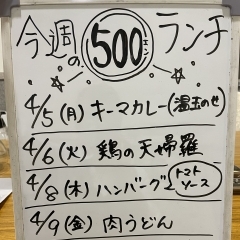 今週の500エンランチ
4/5(月)キーマカレー(温玉のせ)
4/6(火)鶏の天婦羅
4/8(木)ハンバーグトマトソース
4/9(金)肉うどん